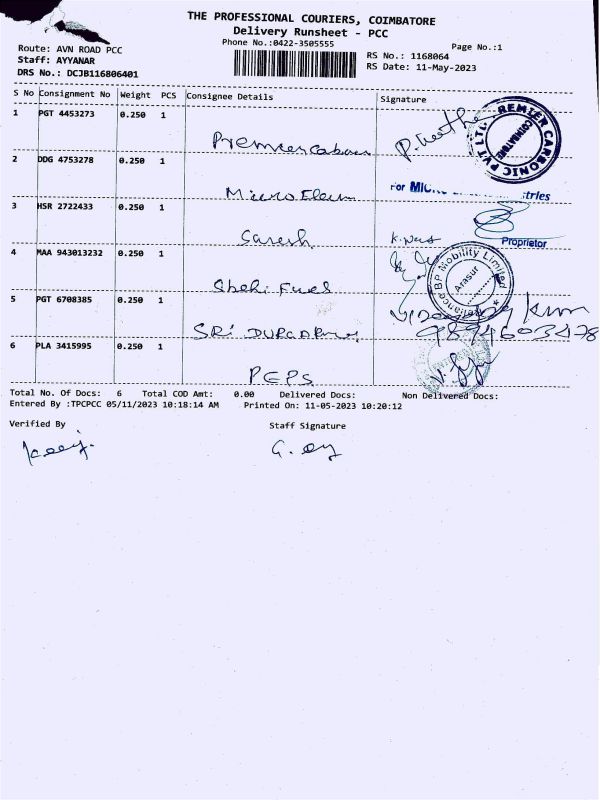 THE PROFESSIONAL COURIERS, COIMBATORE
Delivery Runsheet - PCC
Phone No.:0422-3505555
Page No.:1
Route: AVN ROAD PCC
RS No.: 1168064
Staff: AYYANAR
RS Date: 11-May-2023
DRS No.: DCJB116806401
S No Consignment No Weight PCS Consignee Details Signature
1 PGT 4453273 0.250 1
Premier Carbon
PREMIER CARBONIC PVT LTD. COIMBATORE
2 DDG 4753278 0.250 1
Micro
For MICRO
tries
3 HSR 2722433 0.250 1
Saresh
Proprietor
4 MAA 943013232 0.250 1
Reliance BP Mobility Limited
Arasur
5 PGT 6708385 0.250 1
SRI
9894603478
6 PLA 3415995 0.250 1
PEPS
Total No. Of Docs: 6 Total COD Amt: 0.00 Delivered Docs: Non Delivered Docs:
Entered By :TPCPCC 05/11/2023 10:18:14 AM Printed On: 11-05-2023 10:20:12
Verified By Staff Signature